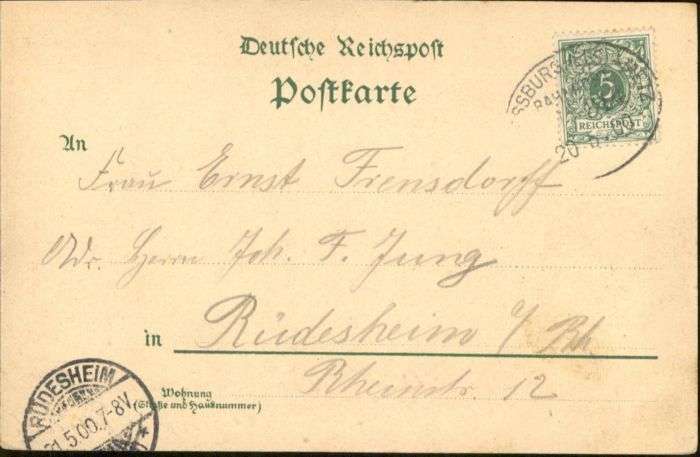 Deutsche Reichspost
Postkarte
5
REICHSPOST
SSBURG
BAH
20
An
Frau Ernst Frensdorff
Adr. Herrn Joh. F. Jung
in Rüdesheim a/Rh
Rheinstr. 12
Wohnung
(Straße und Hausnummer)
RÜDESHEIM
21.5.00.7-8V.
*